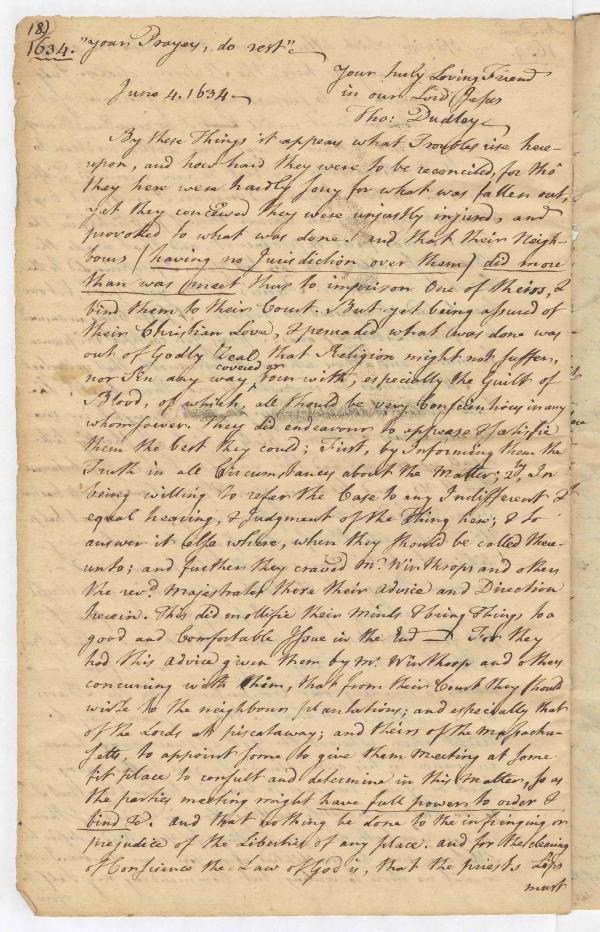 18)
1634. "your Prayers, do rest".
Your truly Loving Friend
June 4. 1634
in our Lord Jesus
Tho: Dudley
By these Things it appears what Troubles rise here-
upon, and how hard they were to be reconciled, for tho'
they here were hardly sorry for what was fallen out,
yet they conceived they were unjustly injured, and
provoked to what was done. and that their Neigh-
bours (having no Jurisdiction over them) did more
than was meet thus to imprison One of theirs, &
bind them to their Court. But yet being assured of
their Christian Love, & perswaded what was done was
out of Godly Zeal, that Religion might not suffer,
nor Sin any way covered or born with, especially the Guilt of
Blood, of which all should be very Conscientious in any
whomsoever. They did endeavour to appease & satisfie
them the best they could; First, by Informing them the
Truth in all Circumstances about the Matter; 2ly, In
being willing to refer the Case to any Indifferent &
equal hearing, & Judgment of the Thing here; & to
answer it else where, when they should be called there-
unto; and further they craved Mr. Winthrops and others
the revd. Majestrates there their advice and Direction
herein. This did mollifie their minds & bring Things to a
good and Comfortable Issue in the End — For they
had this advice given them by Mr. Winthrop and others
concuring with him, that from their Court they should
write to the neighbour plantations; and especially that
of the Lords at piscataway; and theirs of the Massachu-
setts, to appoint some to give them Meeting at some
fit place to consult and determine in this Matter, so as
the parties meeting might have full power to order &
bind &c. and that nothing be done to the infringing or
prejudice of the Liberties of any place. and for the clearing
of Conscience the Law of God is, that the priests Lips
must